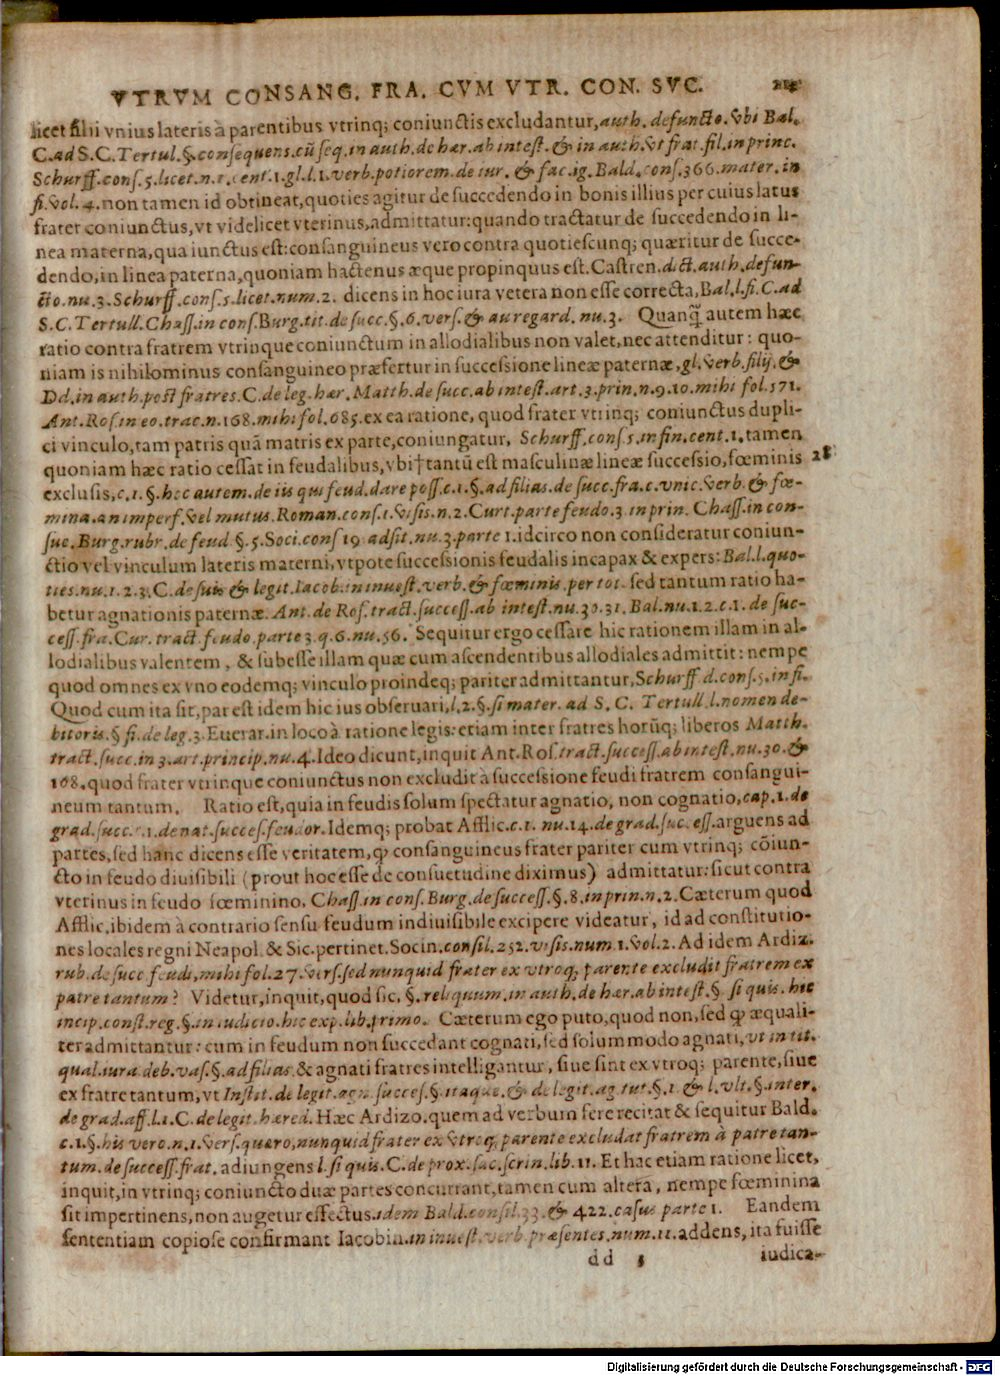 VTRVM CONSANG. FRA. CVM VTR. CON. SVC.
licet filii vnius lateris à parentibus vtrinq; coniunctis excludantur, auth. defuncto. vbi Bal.
C. ad S.C. Tertul. §. consequens. cũ seq. in auth. de hær. ab intest. & in auth. vt frat. fil. in princ.
Schurff. cons. 5. licet. n. 1. cent. 1. gl. l. 1. verb. potiorem. de iur. & fac. ig. Bald. cons. 366. mater. in
fi. vol. 4. non tamen id obtineat, quoties agitur de succedendo in bonis illius per cuius latus
frater coniunctus, vt videlicet vterinus, admittatur: quando tractatur de succedendo in li-
nea materna, qua iunctus est: consanguineus vero contra quotiescunq; quæritur de succe-
dendo, in linea paterna, quoniam hactenus æque propinquus est. Castren. dict. auth. defun-
cto. nu. 3. Schurff. cons. 5. licet. num. 2. dicens in hoc iura vetera non esse correcta, Bal. l. fi. C. ad
S.C. Tertull. Chass. in cons. Burg. tit. de succ. §. 6. vers. & au regard. nu. 3. Quanq̃ autem hæc
ratio contra fratrem vtrinque coniunctum in allodialibus non valet, nec attenditur: quo-
niam is nihilominus consanguineo præfertur in successione lineæ paternæ, gl. verb. filij, &
Dd. in auth. post fratres. C. de leg. hær. Matth. de succ. ab intest. art. 3. prin. n. 9. 10. mihi fol. 571.
Ant. Ros. in eo. trac. n. 168. mihi fol. 685. ex ea ratione, quod frater vtrinq; coniunctus dupli-
ci vinculo, tam patris quã matris ex parte, coniungatur, Schurff. cons. 5. in fin. cent. 1. tamen
quoniam hæc ratio cessat in feudalibus, vbi † tantũ est masculinæ lineæ successio, fœminis 28
exclusis, c. 1. §. hoc autem. de iis qui feud. dare poss. c. 1. §. ad filias. de succ. fra. c. vnic. verb. & fœ-
mina. an imperf. vel mutus. Roman. cons. 1. visis. n. 2. Curt. parte feudo. 3. in prin. Chass. in con-
suc. Burg. rubr. de feud. §. 5. Soci. cons. 19. adsit. nu. 3. parte 1. idcirco non consideratur coniun-
ctio vel vinculum lateris materni, vtpote successionis feudalis incapax & expers: Bal. l. quo-
ties. nu. 1. 2. 3. C. de suis & legit. Iacob. in inuest. verb. & fœminis. per tot. sed tantum ratio ha-
betur agnationis paternæ. Ant. de Ros. tract. success. ab intest. nu. 30. 31. Bal. nu. 1. 2. c. 1. de suc-
cess. fra. Cur. tract. feudo. parte 3. q. 6. nu. 56. Sequitur ergo cessare hic rationem illam in al-
lodialibus valentem, & subesse illam quæ cum ascendentibus allodiales admittit: nempe
quod omnes ex vno eodemq; vinculo proindeq; pariter admittantur, Schurff. d. cons. 5. in fi.
Quod cum ita sit, par est idem hic ius obseruari, l. 2. §. si mater. ad S.C. Tertull. l. nomen de-
bitoris. § fi. de leg. 3. Euerar. in loco à ratione legis: etiam inter fratres horũq; liberos Matth.
tract. succ. in 3. art. princip. nu. 4. Ideo dicunt, inquit Ant. Ros. tract. success. ab intest. nu. 30. &
168. quod frater vtrinque coniunctus non excludit à successione feudi fratrem consangui-
neum tantum. Ratio est, quia in feudis solum spectatur agnatio, non cognatio, cap. 1. de
grad. succ. c. 1. de nat. succes. feudor. Idemq; probat Afflic. c. 1. nu. 14. de grad. success. arguens ad
partes, sed hanc dicens esse veritatem, q̃ consanguineus frater pariter cum vtrinq; cõiun-
cto in feudo diuisibili (prout hoc esse de consuetudine diximus) admittatur: sicut contra
vterinus in feudo fœminino. Chass. in cons. Burg. de success. §. 8. in prin. n. 2. Cæterum quod
Afflic. ibidem à contrario sensu feudum indiuisibile excipere videatur, id ad constitutio-
nes locales regni Neapol. & Sic. pertinet. Socin. consil. 252. visis. num. 1. vol. 2. Ad idem Ardiz.
rub. de succ. feudi, mihi fol. 27. vers. sed nunquid frater ex vtroq; parente excludit fratrem ex
patre tantum? Videtur, inquit, quod sic. §. reliquum. in auth. de hær. ab intest. § si quis. hic
incip. const. reg. §. in iudicio. hic exp. lib. primo. Cæterum ego puto, quod non, sed q̃ æquali-
ter admittantur: cum in feudum non succedant cognati, sed solummodo agnati, vt in tit.
qual. iura deb. vas. §. ad filias. & agnati fratres intelligantur, siue sint ex vtroq; parente, siue
ex fratre tantum, vt Instit. de legit. agn. succes. §. itaque. & de legit. ag. tut. §. 1. & l. vlt. §. inter.
de grad. aff. l. 1. C. de legit. hæred. Hæc Ardizo. quem ad verbum fere recitat & sequitur Bald.
c. 1. §. his vero. n. 1. vers. quæro, nunquid frater ex vtroq; parente excludat fratrem à patre tan-
tum. de success. frat. adiungens l. si quis. C. de prox. sac. scrin. lib. 11. Et hac etiam ratione licet,
inquit, in vtrinq; coniuncto duæ partes concurrant, tamen cum altera, nempe fœminina
sit impertinens, non augetur effectus. idem Bald. consil. 33. & 422. casus parte 1. Eandem
sententiam copiose confirmant Iacobin. in inuest. verb. præsentes. num. 11. addens, ita fuisse
dd iudica-
Digitalisierung gefördert durch die Deutsche Forschungsgemeinschaft - DFG